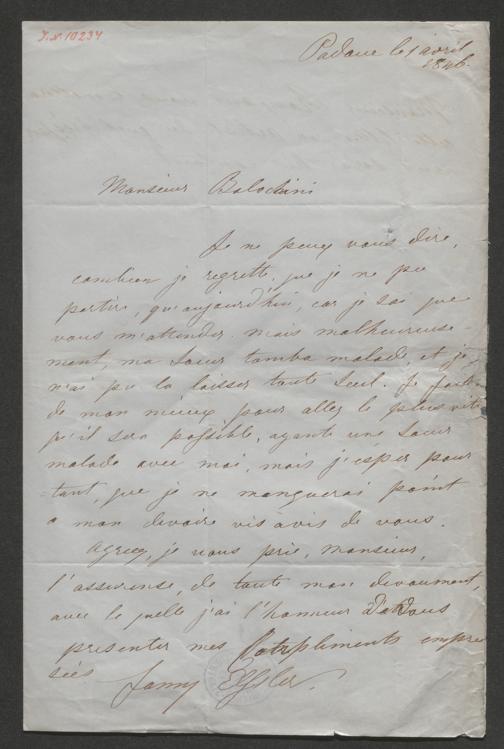 J.N. 10234
Padoue le 1 avril
1846.
Monsieur Balochini
Je ne peux vous dire,
combien je regrette, que je ne pu
partir, qu'aujourd'hui, car je sai que
vous m'attender. mais malheureuse-
ment, ma soeur tomba malade, et je
n'ai pu la laisser toute seul. Je
de mon mieux, pour aller le plus vite
qu'il sera possible, ayante une soeur
malade avec moi, mais j'esper pour
=tant, que je ne manquerai point
a mon devoire vis avis de vous.
Agreez, je vous prie, Monsieur,
l'assurense, de toute mon devoument,
avec le quelle j'ai l'honneur Vous
presenter mes Compliments empre
sées
Fanny Elssler.